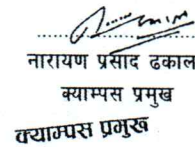 नारायण प्रसाद ढकाल
क्याम्पस प्रमुख
क्याम्पस प्रमुख